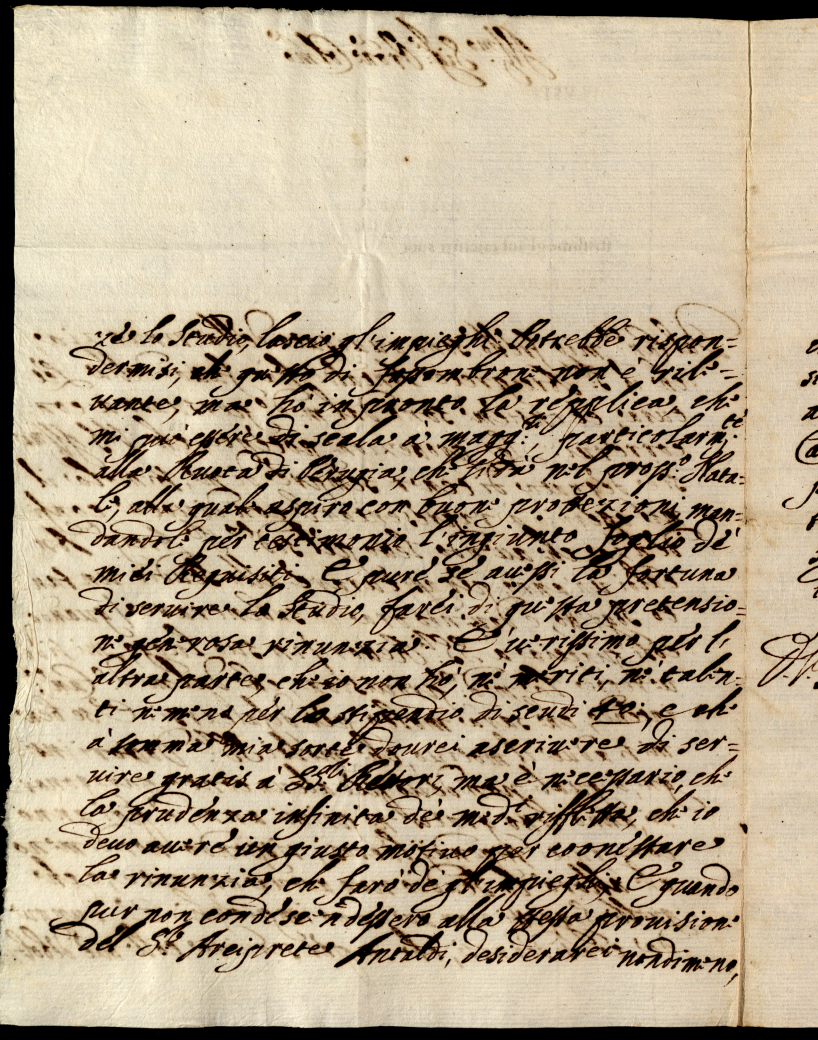 re lo Studio, lascio gl'impieghi. Potrebbe rispon=
dermisi, che questo di Fossombrone non è rile=
uante, ma hò in pronto la replica, che
mi può essere di scala à magg.ri particolarm.te
alla Ruota di Perugia, che si dà nel pross.o Nata=
le, alla quale aspiro con buone protezioni, man=
dandole per testimonio l'ingiunto foglio de
miei Requisiti. E pure se auessi la fortuna
di seruire lo Studio, farei di questa pretensio=
ne generosa rinunzia. È uerissimo per l'
altra parte, che io non hò, nè meriti, nè talen=
ti nemeno per lo stipendio di scudi 40:, e che
à somma mia sorte dourei ascriuere di ser=
uire gratis à SS.ri Rettori, ma è necessario, che
la prudenza infinita de med.i rifletta, che io
deuo auere un giusto motiuo per coonestare
la rinunzia, che farò de gl'impieghi; E quando
pur non condescendessero alla stessa prouisione
del S.r Arciprete Antaldi, desiderarei nondimeno,